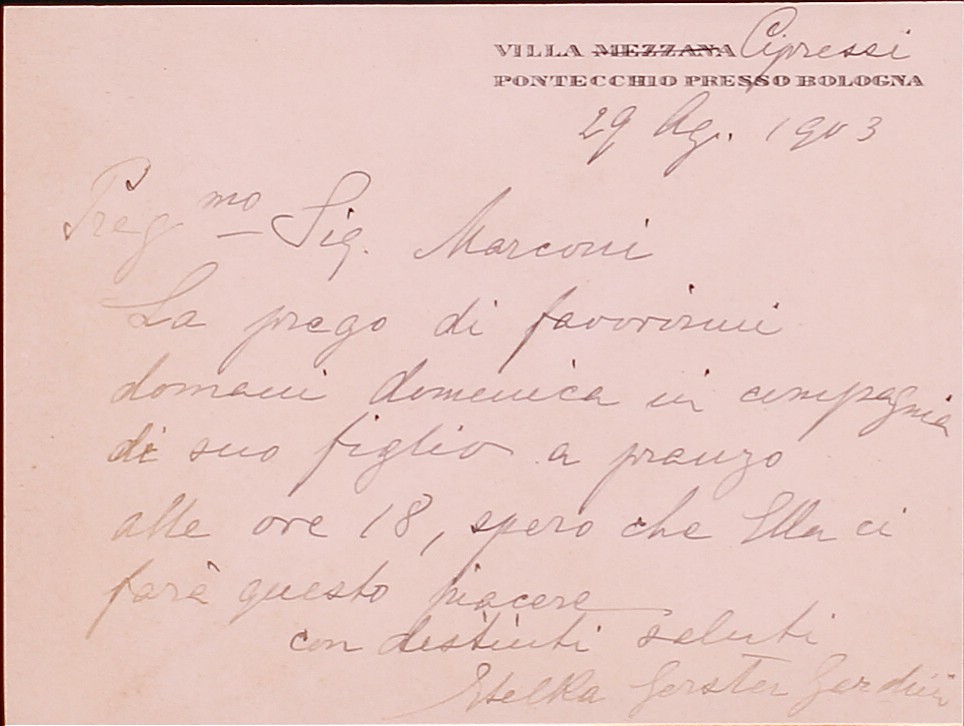 VILLA MEZZANA Cipressi
PONTECCHIO PRESSO BOLOGNA
29 Ag. 1903
Preg mo Sig. Marconi
La prego di favorirmi
domani domenica in compagnia
di suo figlio a pranzo
alle ore 18, spero che Ella ci
farà questo piacere
con distinti saluti
Etelka Gerster Gardini